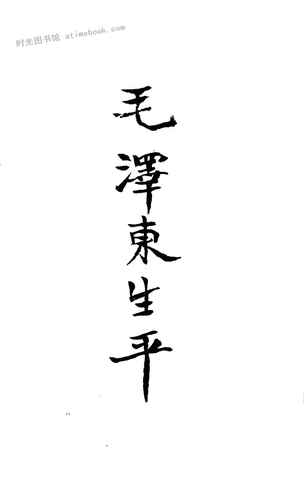 时光图书馆 atimebook.com
毛澤東生平